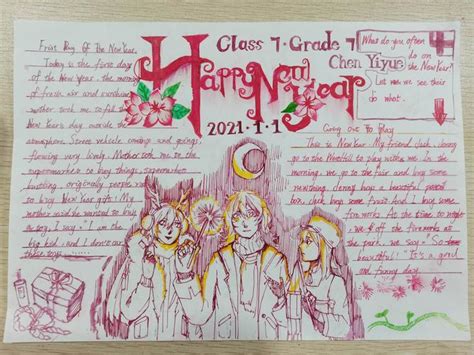 Frist Day Of The New Year.
Today is the first day
of the New Year. the morning
of fresh air and sunshine
mother took me to feel the
New Year's day outside the
atmosphere. Street vehicle comings and goings,
flowing very lively. Mother took me to the
supermarket to buy things, supermarket
bustling, originally people
to buy New Year gifts! My
mother said he wanted to
a toy, I say: "I am the
big kid, and I don't care
these toys
Class 7. Grade 7
Chen Yiyue
Happy New Year
2021.1.1
What do you often
do on
the New Year?
Let me see their
do what.
Going Out To Play
This is New Year. My friend Jack, Jenny
go to the to play with me. In the
morning. we go to the fair and buy some
Jenny buys a beautiful
box, Jack buys some fruit And I buy some
fireworks. At the time to
we off the fireworks at
the park, we say: So
beautiful! It's a great
and funny day.